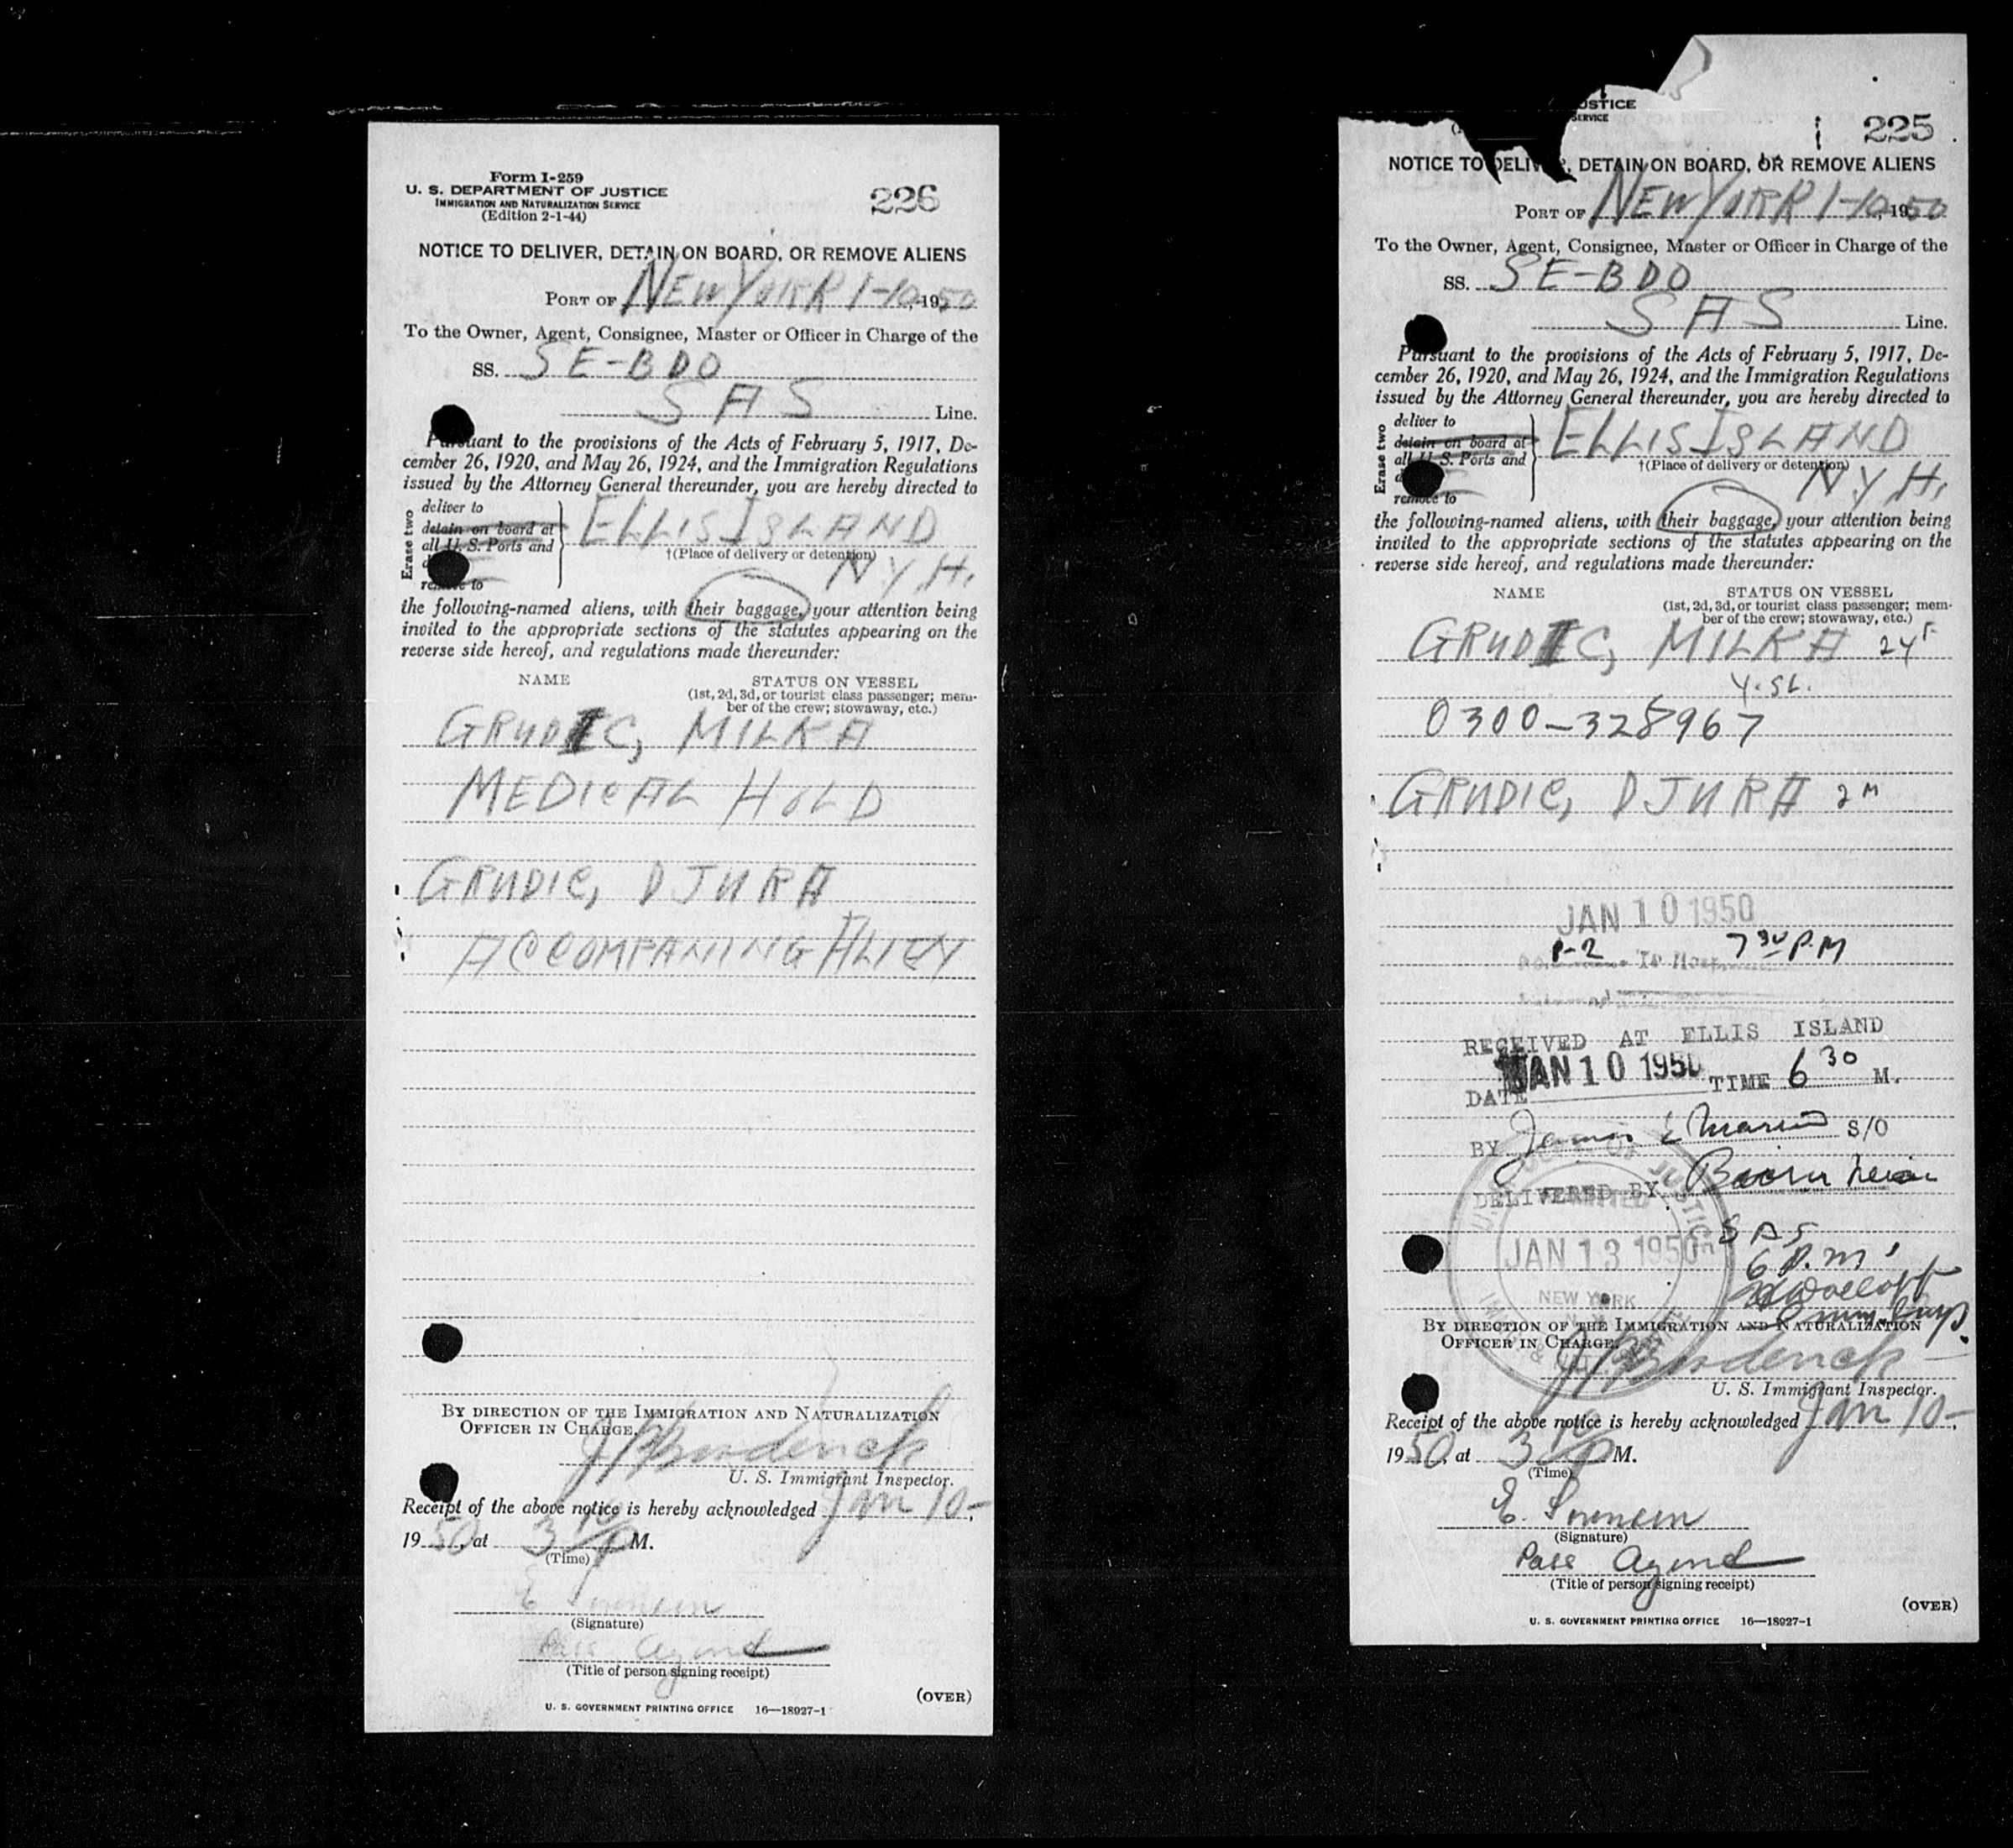 Form I-259
U. S. DEPARTMENT OF JUSTICE
IMMIGRATION AND NATURALIZATION SERVICE
(Edition 2-1-44)
226
NOTICE TO DELIVER, DETAIN ON BOARD, OR REMOVE ALIENS
PORT OF NEW YORK 1-10-, 1950
To the Owner, Agent, Consignee, Master or Officer in Charge of the
SS. SE-BDO
SAS Line.
Pursuant to the provisions of the Acts of February 5, 1917, De-
cember 26, 1920, and May 26, 1924, and the Immigration Regulations
issued by the Attorney General thereunder, you are hereby directed to
Erase two
deliver to
detain on board at
all U. S. Ports and
remove to
ELLIS ISLAND
†(Place of delivery or detention)
N Y H.
the following-named aliens, with their baggage, your attention being
invited to the appropriate sections of the statutes appearing on the
reverse side hereof, and regulations made thereunder:
NAME STATUS ON VESSEL
(1st, 2d, 3d, or tourist class passenger; mem-
ber of the crew; stowaway, etc.)
GRUDIC, MILKA
MEDICAL HOLD
GRUDIC, DJURA
ACCOMPANING ALIEN
BY DIRECTION OF THE IMMIGRATION AND NATURALIZATION
OFFICER IN CHARGE.
Broderick
U. S. Immigrant Inspector.
Receipt of the above notice is hereby acknowledged Jan 10-,
1950, at 3 10 P M.
(Time)
E
(Signature)
Pass Agent
(Title of person signing receipt)
(OVER)
U. S. GOVERNMENT PRINTING OFFICE 16—18927-1
USTICE
SERVICE
225
NOTICE TO DELIVER, DETAIN ON BOARD, OR REMOVE ALIENS
PORT OF NEW YORK 1-10-, 1950
To the Owner, Agent, Consignee, Master or Officer in Charge of the
SS. SE-BDO
SAS Line.
Pursuant to the provisions of the Acts of February 5, 1917, De-
cember 26, 1920, and May 26, 1924, and the Immigration Regulations
issued by the Attorney General thereunder, you are hereby directed to
Erase two
deliver to
detain on board at
all U. S. Ports and
remove to
ELLIS ISLAND
†(Place of delivery or detention)
N Y H.
the following-named aliens, with their baggage, your attention being
invited to the appropriate sections of the statutes appearing on the
reverse side hereof, and regulations made thereunder:
NAME STATUS ON VESSEL
(1st, 2d, 3d, or tourist class passenger; mem-
ber of the crew; stowaway, etc.)
GRUDIC, MILKA 24 F
Y. SL.
0300-328967
GRUDIC, DJURA 2 M
JAN 10 1950
P-2 7 30 P.M
RECEIVED AT ELLIS ISLAND
DATE JAN 10 1950 TIME 6 30 M.
BY James E S/O
DELIVERED BY
SAS
6 P.M.
JAN 13 1950
NEW YORK
Imm. Insp.
BY DIRECTION OF THE IMMIGRATION AND NATURALIZATION
OFFICER IN CHARGE.
Broderick
U. S. Immigrant Inspector.
Receipt of the above notice is hereby acknowledged Jan 10-,
1950, at 3 10 P M.
(Time)
E.
(Signature)
Pass Agent
(Title of person signing receipt)
(OVER)
U. S. GOVERNMENT PRINTING OFFICE 16—18927-1